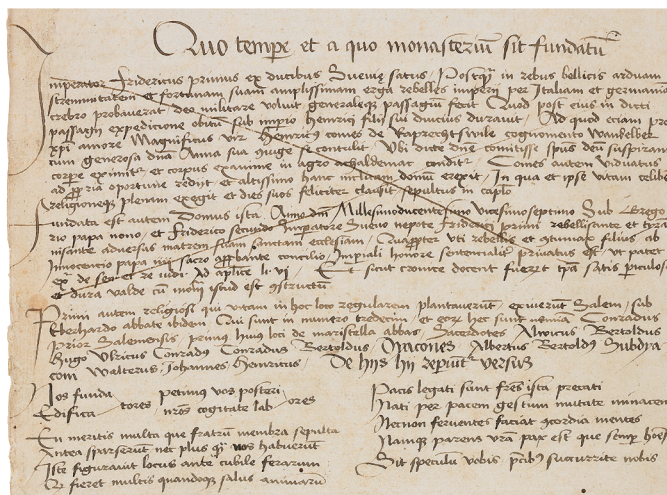 Quo tempore et a quo monasteriu sit fundatu
Imperator Fridericus primus ex ducibus Suevie satus Postqz in rebus bellicis arduam
strennuitatem et fortunam suam amplissimam erga rebelles imperii per Italiam et germaniam
crebro probaverat deo militare voluit generaleque passagiu fecit Quod post eius in dicti
passagii expeditione obitu sub impio Henrici filii sui diucius duravit Ad quod eciam pre
xpi amore Magnificus vir Henricus comes de Raprechtswile cognomento Wandelber
cum generosa dna Anna sua iuge se contulit Ubi dicte dne comitisse spus deu suspirans
corpe eximit et corpus exanime in agro acheldemac condit Comes autem viduatus
ad ppria oportune redut et altissimo hanc inclitam domu erexit In qua et ipse vitam celibe
religioneqz plenam exegit et dies suos feliciter clausit sepultus in caplo
Fundata est autem Domus ista Anno dni Millesimoducentesimo vicesimoseptimo Sub Grego
rio papa nono et Friderico secundo Impatore Suevo nepote Friderici primi rebellisante et tyra
nisante adversus matrem suam sanctam ecclesiam Quapropter uti rebellis et contumax filius ab
Innocencio papa iiii sacro approbante concilio Imperiali honore sentencialiter privatus est ut patet
ex de sen et re iudi Ad aplice li vi Et sicut cronice docent fuerut tpa satis periculosa
et dura valde cu monasterium istud est constructu
Primi autem religiosi qui vitam in hoc loco regularem plantaverut exiverut Salem sub
Eberhardo abbate ibidem Qui sunt in numero tredecim et eorum hec sunt nomina Conradus
Prior Salemensis primus huius loci de maristella abbas Sacerdotes Alwicus Bertoldus
Hugo Ulricus Conradus Conradus Bertoldus Diacones Albertus Bertoldus Subdia
com Walterus Johannes Henricus De hijs hij repiunt versus
Nos funda tores petimus vos posteri ores
Edifica nros cogitate lab
En meritis multa que fratru membra sepulta
Antea sparserut nec plus qz vos habuerut
Iste figuravit locus ante cubile ferarum
Et fieret multis quandoqz salus animaru
Pacis legati sunt fres ista precati
Nati per pacem gestum mutate minacem
Necnon ferventes faciat concordia mentes
Namque parens vra pax est que semp
Sit speculum vobis pcibus succurrite nobis